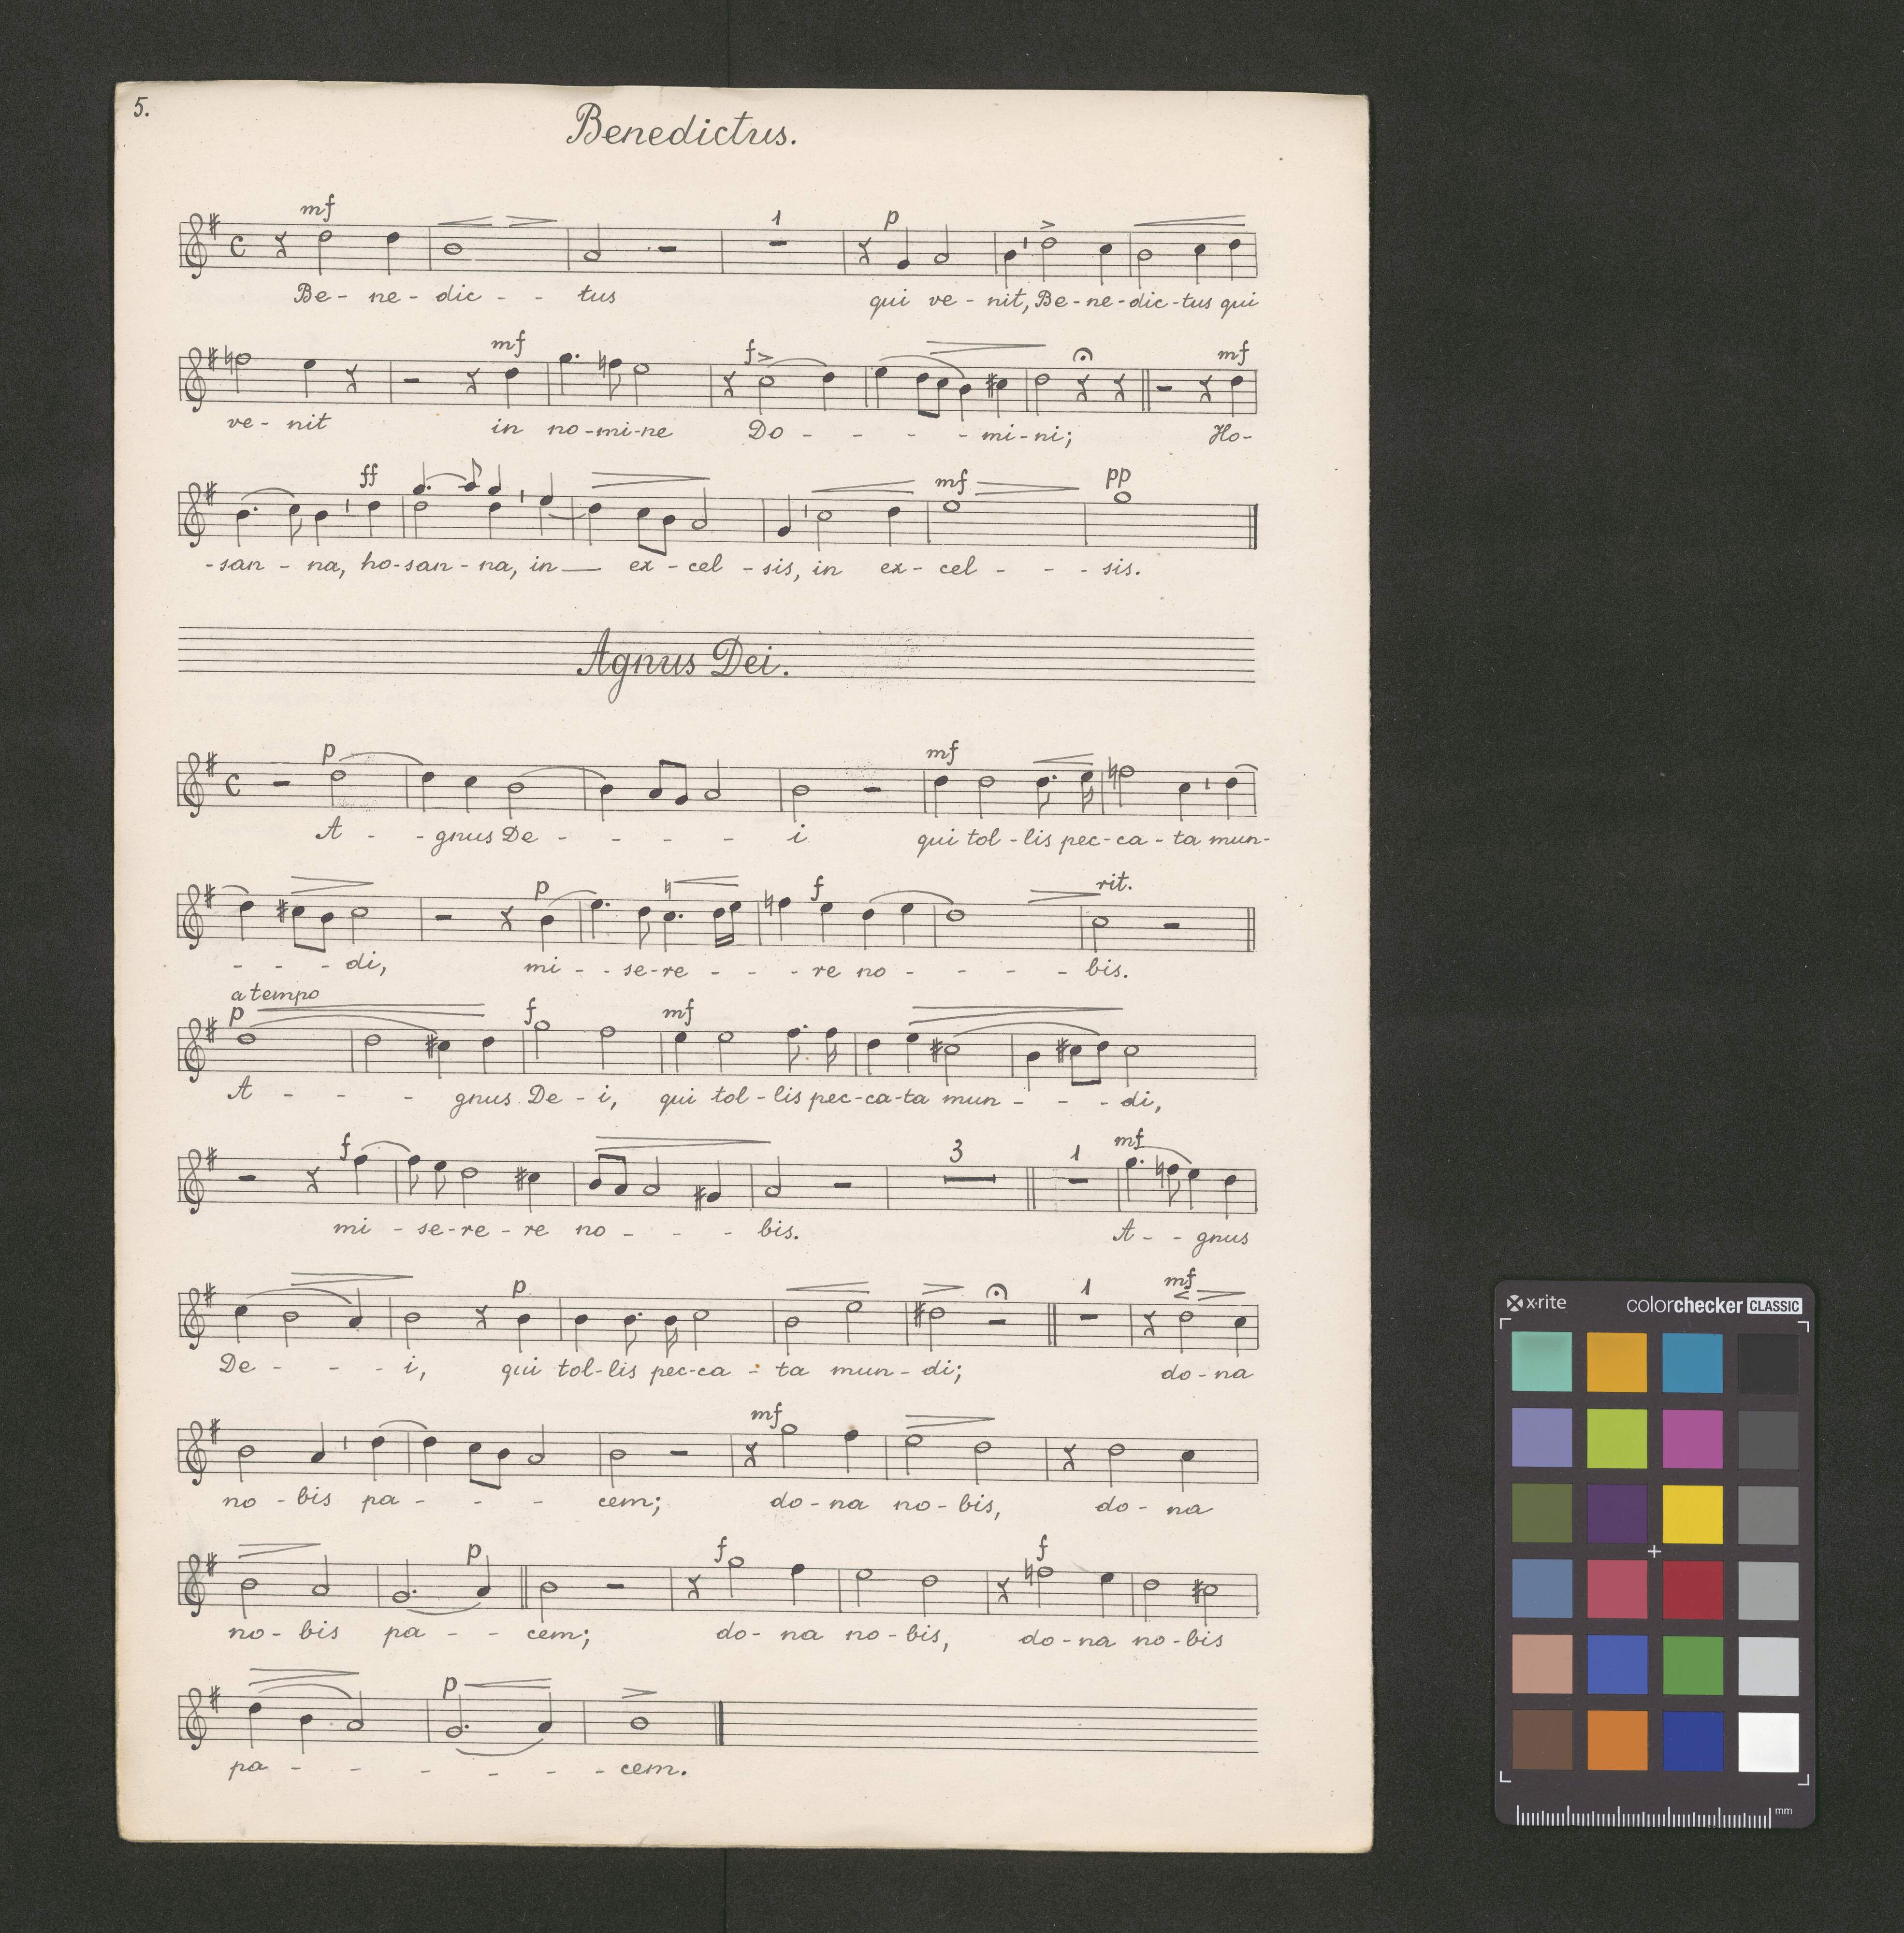 5.
Benedictus.
mf 1 p
Be - ne - dic - - tus qui ve - nit, Be - ne - dic - tus qui
mf f mf
ve - nit in no - mi - ne Do - - - - mi - ni; Ho -
ff mf pp
- san - na, ho - san - na, in — ex - cel - sis, in ex - cel - - - sis.
Agnus Dei.
p mf
A - - gnus De - - - - i qui tol - lis pec - ca - ta mun -
p f rit.
- - - di, mi - - se - re - - - re no - - - - bis.
a tempo
p f mf
A - - - gnus De - i, qui tol - lis pec - ca - ta mun - - - di,
f 3 1 mf
mi - se - re - re no - - - bis. A - - gnus
p 1 mf
De - - - i, qui tol - lis pec - ca - ta mun - di; do - na
mf
no - bis pa - - - cem; do - na no - bis, do - na
p f f
no - bis pa - - cem; do - na no - bis, do - na no - bis
p
pa - - - - - - cem.
x·rite colorchecker CLASSIC
mm